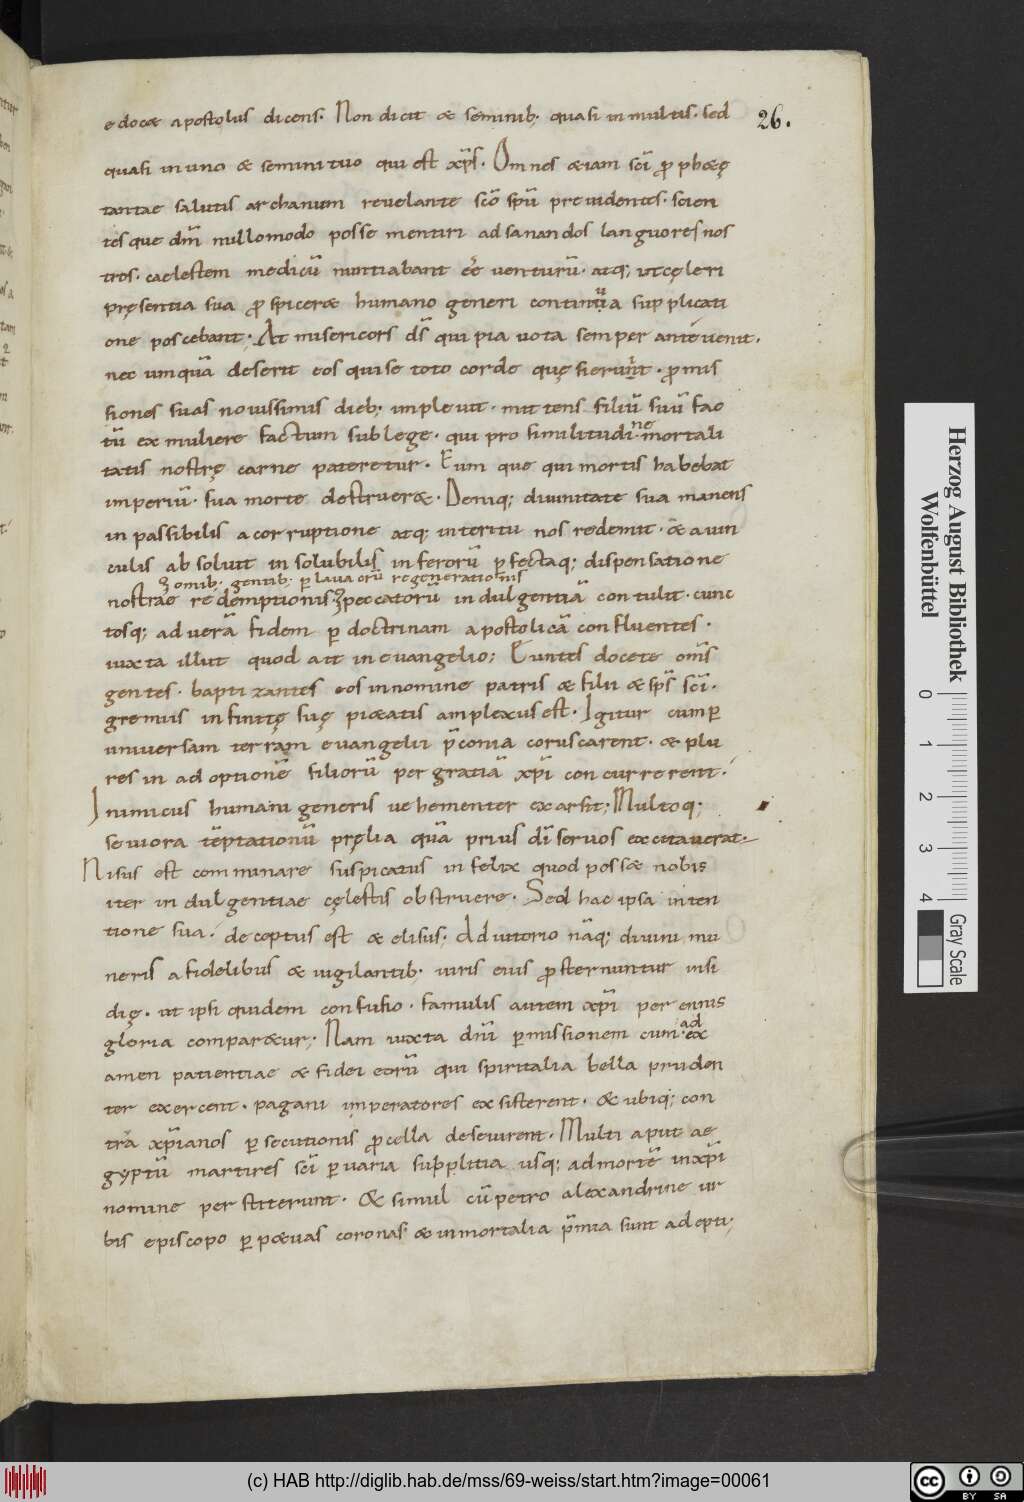 edocæ apostolus dicens. Non dicit æ seminib; quasi in multis. sed
26.
quasi in uno æ semini tuo qui est xp̄s. Omnes ætiam sc̄i pphæę
tantae salutis archanum revelante sc̄o sp̄u previdentes. scien
tesque dn̄m nullomodo posse mentiri ad sanandos languores nos
tros. caelestem medicū nuntiabant eē venturū. atq; ut cęleri
pręsentia sua pspiceræ humano generi continua supplicati
one poscebant; At misericors dš qui pia vota semper antevenit.
nec umquā deserit eos qui se toto corde quęsierunt. promis
siones suas novissimis dieb; implevit. mittens filiū suū fac
tū ex muliere factum sub lege. qui pro similitudine mortali
tatis nostrę carne pateretur. Eumque qui mortis habebat
imperiū. sua morte destrueræ. Deniq; divinitate sua manens
inpassibilis a corruptione atq; interitu nos redemit. æ a vin
culis absolvit insolubilis inferorū pfectaq; dispensatione
omib; gentib; p lavacrū regenerationis
nostrae redemptionis peccatorū indulgentiā contulit. cunc
tosq; ad verā fidem p doctrinam apostolicā confluentes.
iuxta illut quod ait in evangelio; Euntes docete om̄s
gentes. baptizantes eos in nomine patris æ filii æ sp̄s sc̄i.
gremiis infinitę suę piætatis amplexus est. Igitur cum p
universam terram evangelii p̄conia coruscarent. æ plu
res in adoptionē filiorū per gratiā xp̄i concurrerent.
Inimicus humani generis vehementer exarsit; Multoq;
seviora tēptationū pręlia quā prius dī servos excitaverat.
Nisus est comminare suspicatus infelix quod possæ nobis
iter indulgentiae cęlestis obstruere. Sed hac ipsa inten
tione sua. deceptus est æ elisus; Adiutorio nāq; divini mu
neris a fidelibus æ vigilantib; viris eius psternuntur insi
dię. ut ipsi quidem confusio. famulis autem xp̄i perennis
gloria comparæur; Nam iuxta dn̄i pmissionem cum ad ex
amen patientiae æ fidei eorū qui spiritalia bella pruden
ter exercent. pagani imperatores exsisterent. & ubiq; con
tra xp̄ianos psecutionis pcella desevirent. Multi aput ae
gyptū martires sc̄i p varia supplitia usq; ad mortē in xp̄i
nomine perstiterunt. & simul cū petro alexandrine ur
bis episcopo p pævas coronas æ inmortalia p̄mia sunt adepti;
Herzog August Bibliothek
Wolfenbüttel
0 1 2 3 4
Gray Scale
(c) HAB http://diglib.hab.de/mss/69-weiss/start.htm?image=00061
cc BY SA